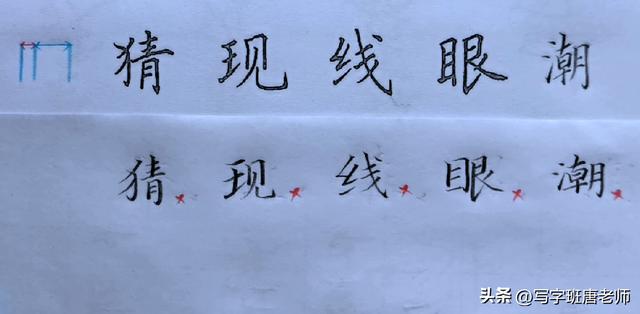 猜现线眼潮
猜现线眼潮
头条 @写字班唐老师